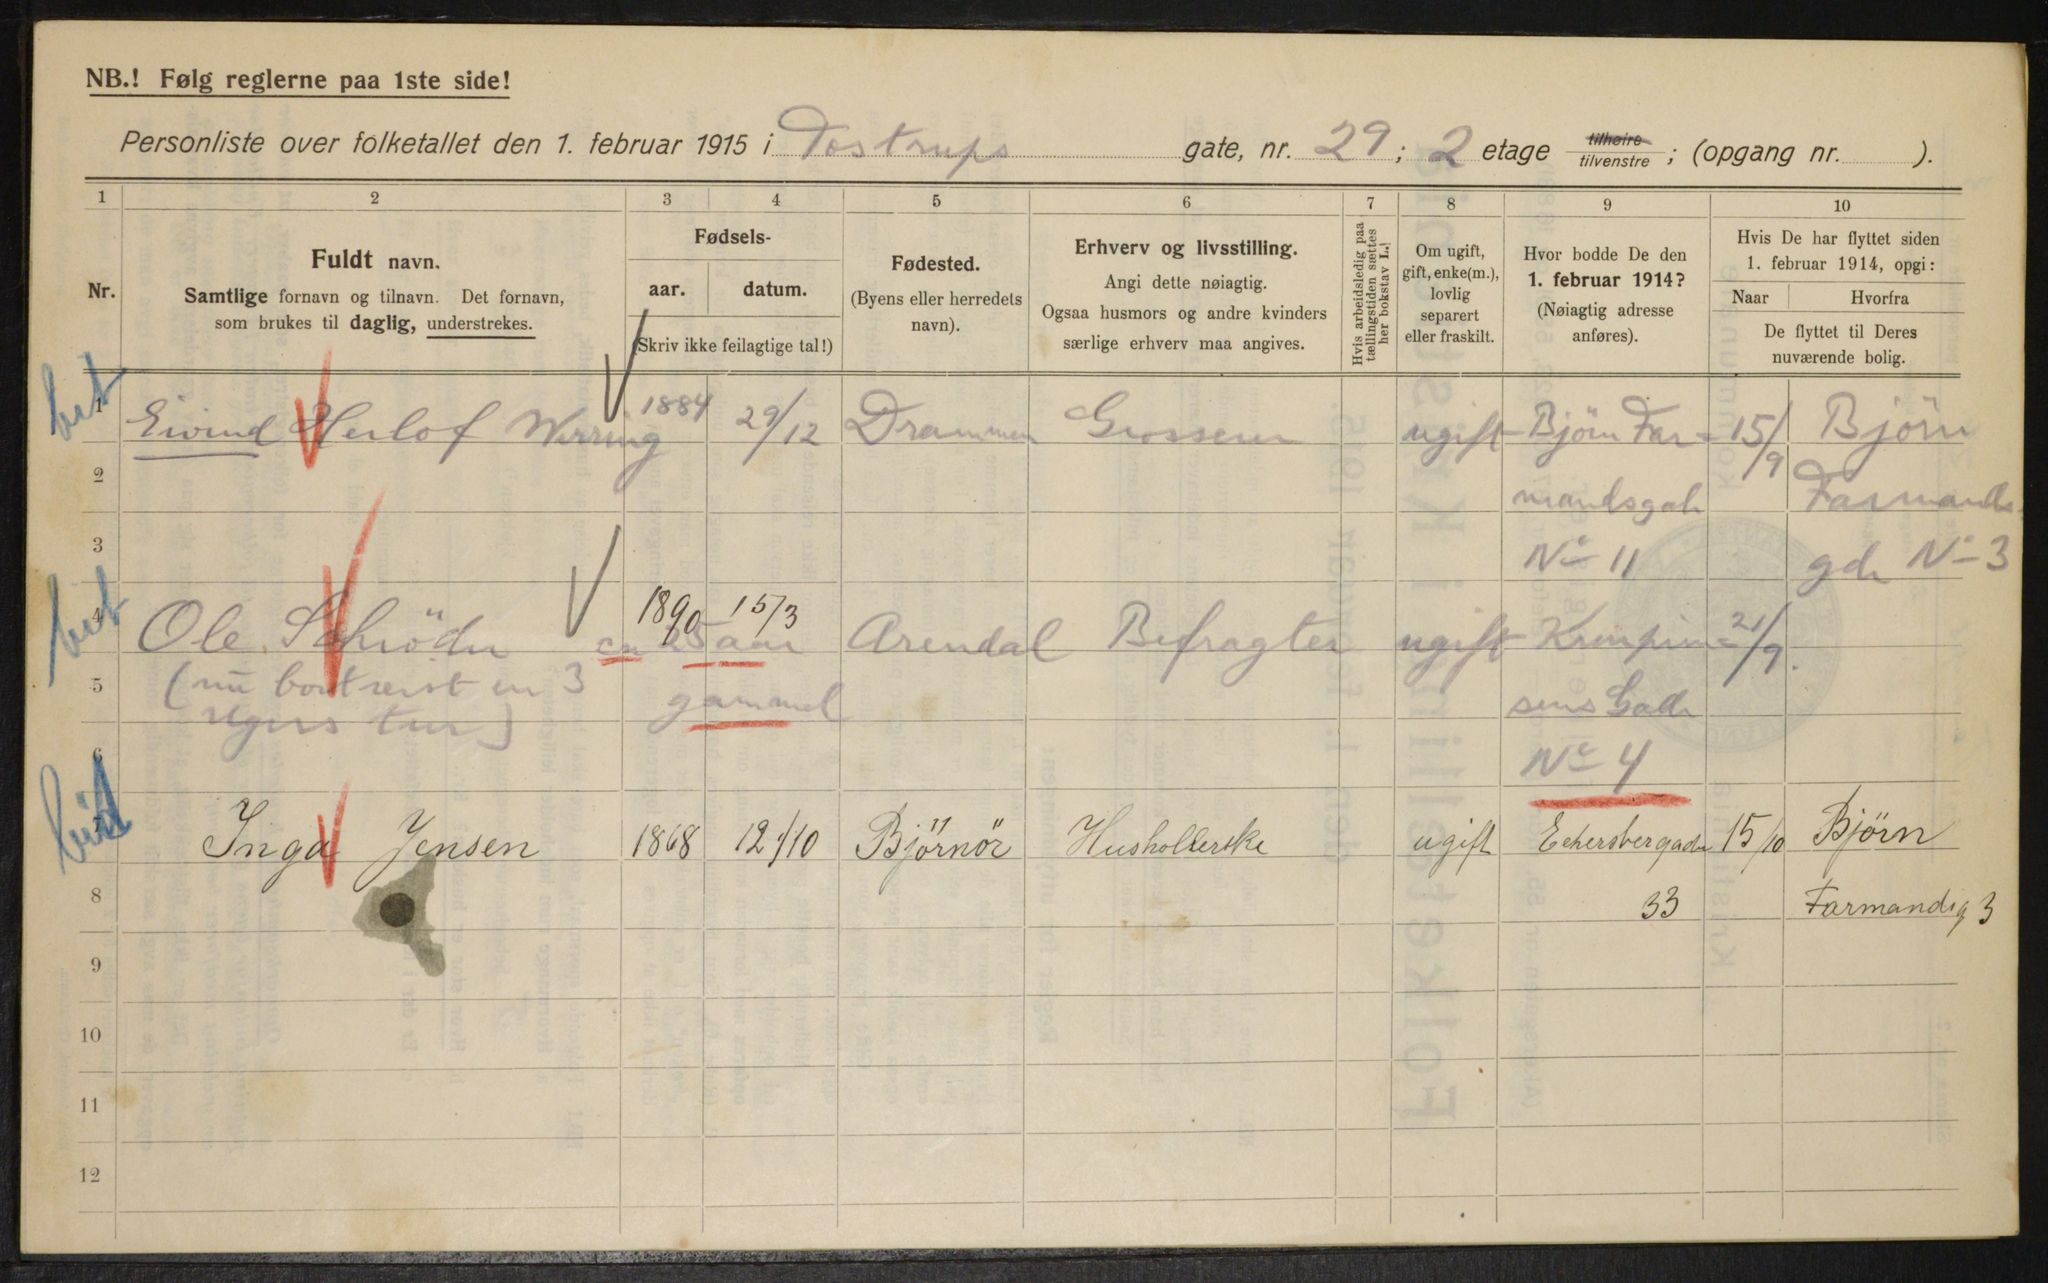 NB.! Følg reglerne paa 1ste side!
Personliste over folketallet den 1. februar 1915 i Tostrups gate, nr. 29; 2 etage tilhøire tilvenstre; (opgang nr. ).
1 2 3 4 5 6 7 8 9 10
Nr.
Fuldt navn.
Samtlige fornavn og tilnavn. Det fornavn,
som brukes til daglig, understrekes.
Fødsels-
aar. datum.
(Skriv ikke feilagtige tal!)
Fødested.
(Byens eller herredets
navn).
Erhverv og livsstilling.
Angi dette nøiagtig.
Ogsaa husmors og andre kvinders
særlige erhverv maa angives.
Hvis arbeidsledig paa
tællingstiden sættes
her bokstav L.!
Om ugift,
gift, enke(m.),
lovlig
separert
eller fraskilt.
Hvor bodde De den
1. februar 1914?
(Nøiagtig adresse
anføres).
Hvis De har flyttet siden
1. februar 1914, opgi:
Naar Hvorfra
De flyttet til Deres
nuværende bolig.
1 Eivind Herlof Werring 1884 29/12 Drammen Grosserer ugift Bjørn Far= 15/9 Björn
2 mandsgade Farmands
3 No 11 gde No 3
4 Ole Schröder 1890 15/3 ca 25 aar Arendal Befragter ugift 21/9.
5 (nu bortreist en 3 gammel sens Gade
ugers tur)
6 No 4
7 Inga Jensen 1868 12/10 Björnör Husholderske ugift Eckersbergade 15/10 Bjørn
8 33 Farmandsg 3
9
10
11
12